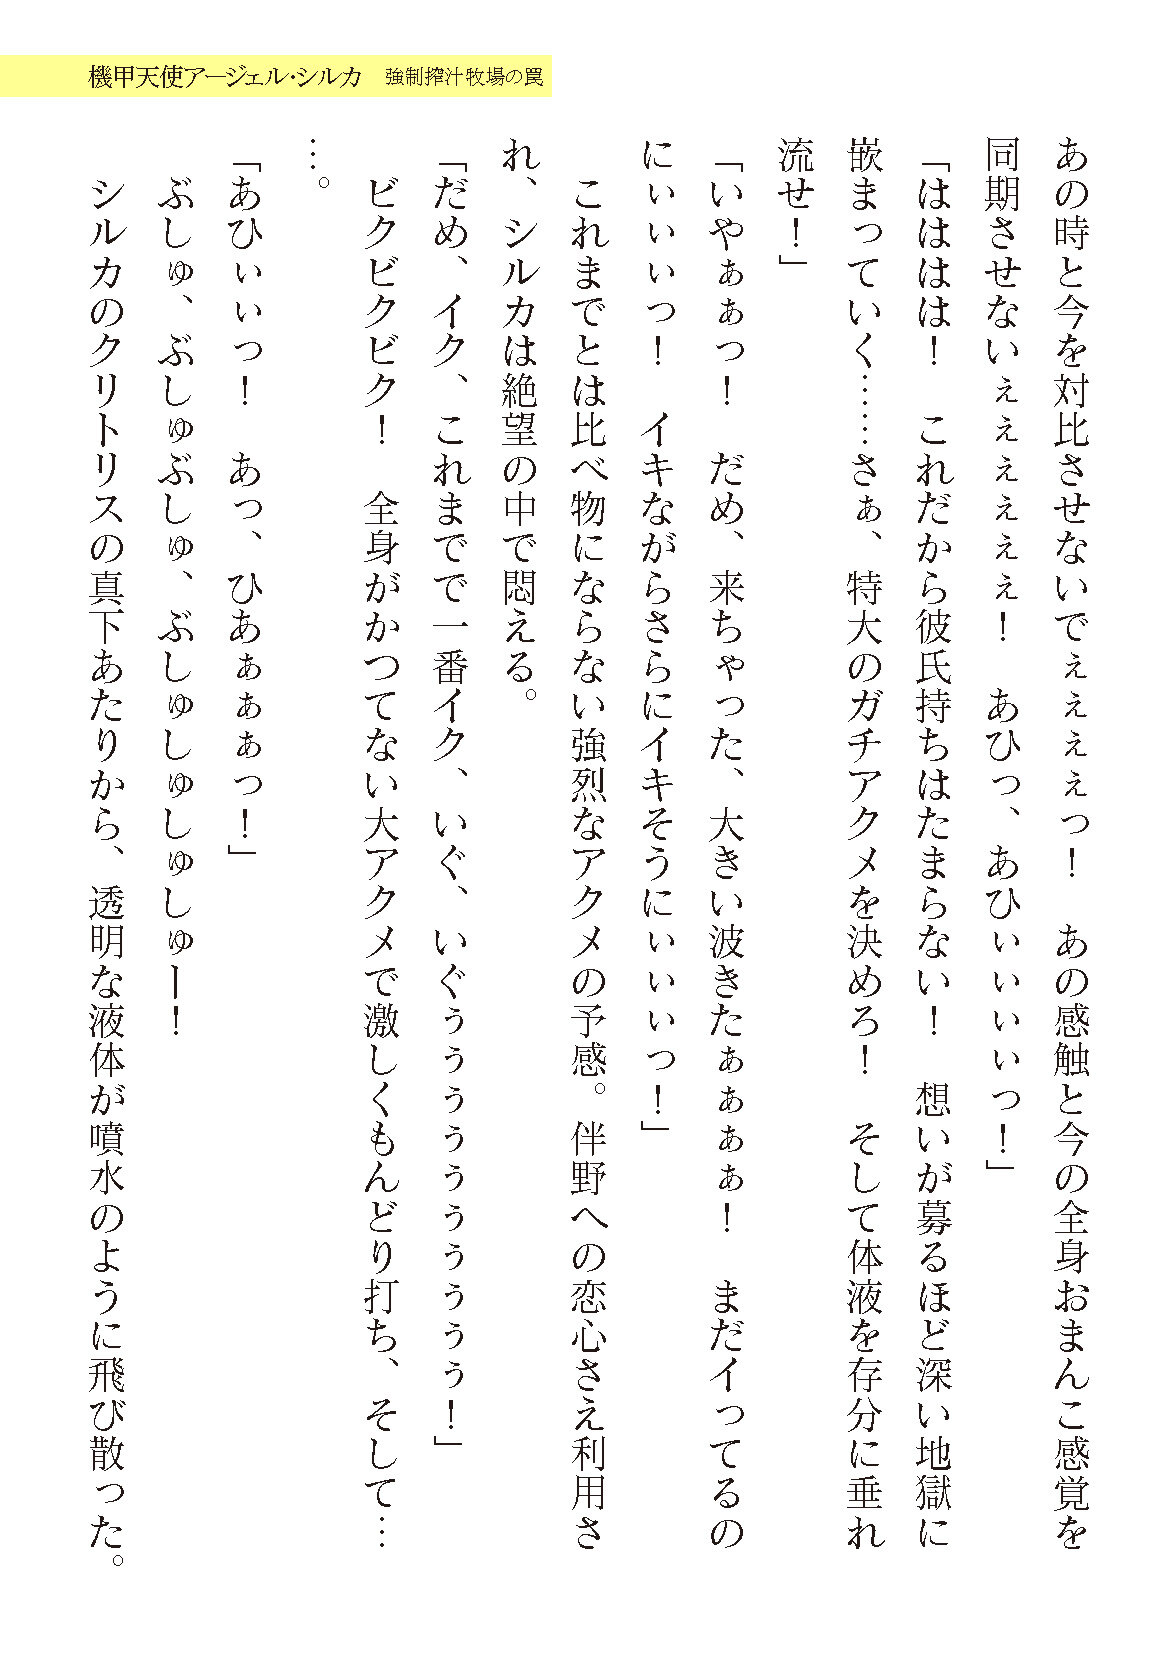 機甲天使アージェル・シルカ　強制搾汁牧場の罠
あの時と今を対比させないでぇぇぇぇっ！　あの感触と今の全身おまんこ感覚を
同期させないぇぇぇぇぇぇ！　あひっ、あひぃぃぃぃっ！」
「はははは！　これだから彼氏持ちはたまらない！　想いが募るほど深い地獄に
嵌まっていく……さぁ、特大のガチアクメを決めろ！　そして体液を存分に垂れ
流せ！」
「いやぁぁっ！　だめ、来ちゃった、大きい波きたぁぁぁぁ！　まだイってるの
にぃぃぃっ！　イキながらさらにイキそうにぃぃぃっ！」
　これまでとは比べ物にならない強烈なアクメの予感。伴野への恋心さえ利用さ
れ、シルカは絶望の中で悶える。
「だめ、イク、これまでで一番イク、いぐ、いぐぅぅぅぅぅぅぅぅぅぅ！」
　ビクビクビク！　全身がかつてない大アクメで激しくもんどり打ち、そして…
…。
「あひぃぃっ！　あっ、ひあぁぁぁっ！」
　ぶしゅ、ぶしゅぶしゅ、ぶしゅしゅしゅしゅー！
　シルカのクリトリスの真下あたりから、透明な液体が噴水のように飛び散った。